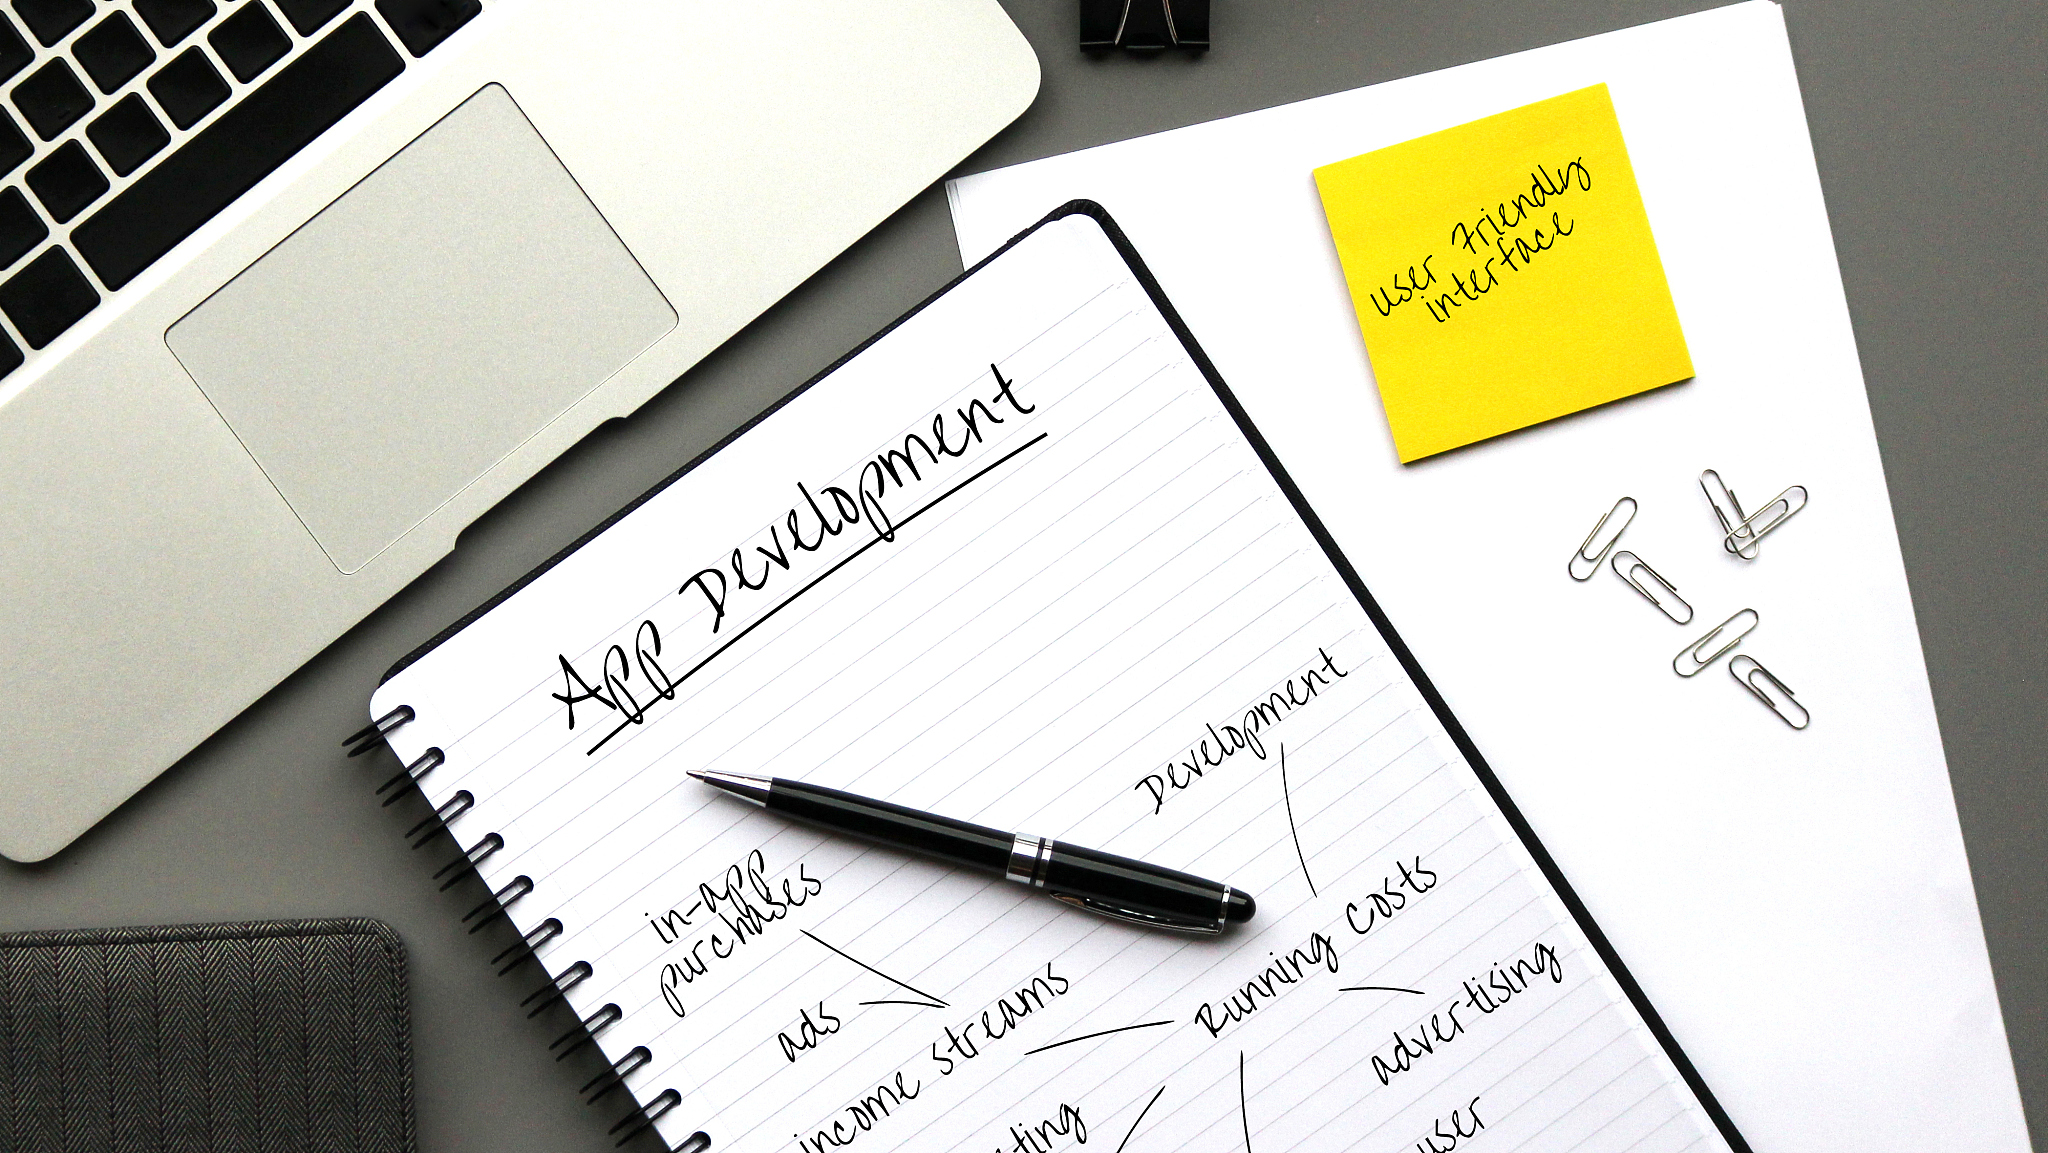 user Friendly
interface
App Development
Development
in-app
purchases
Running costs
ads
income streams
advertising
user